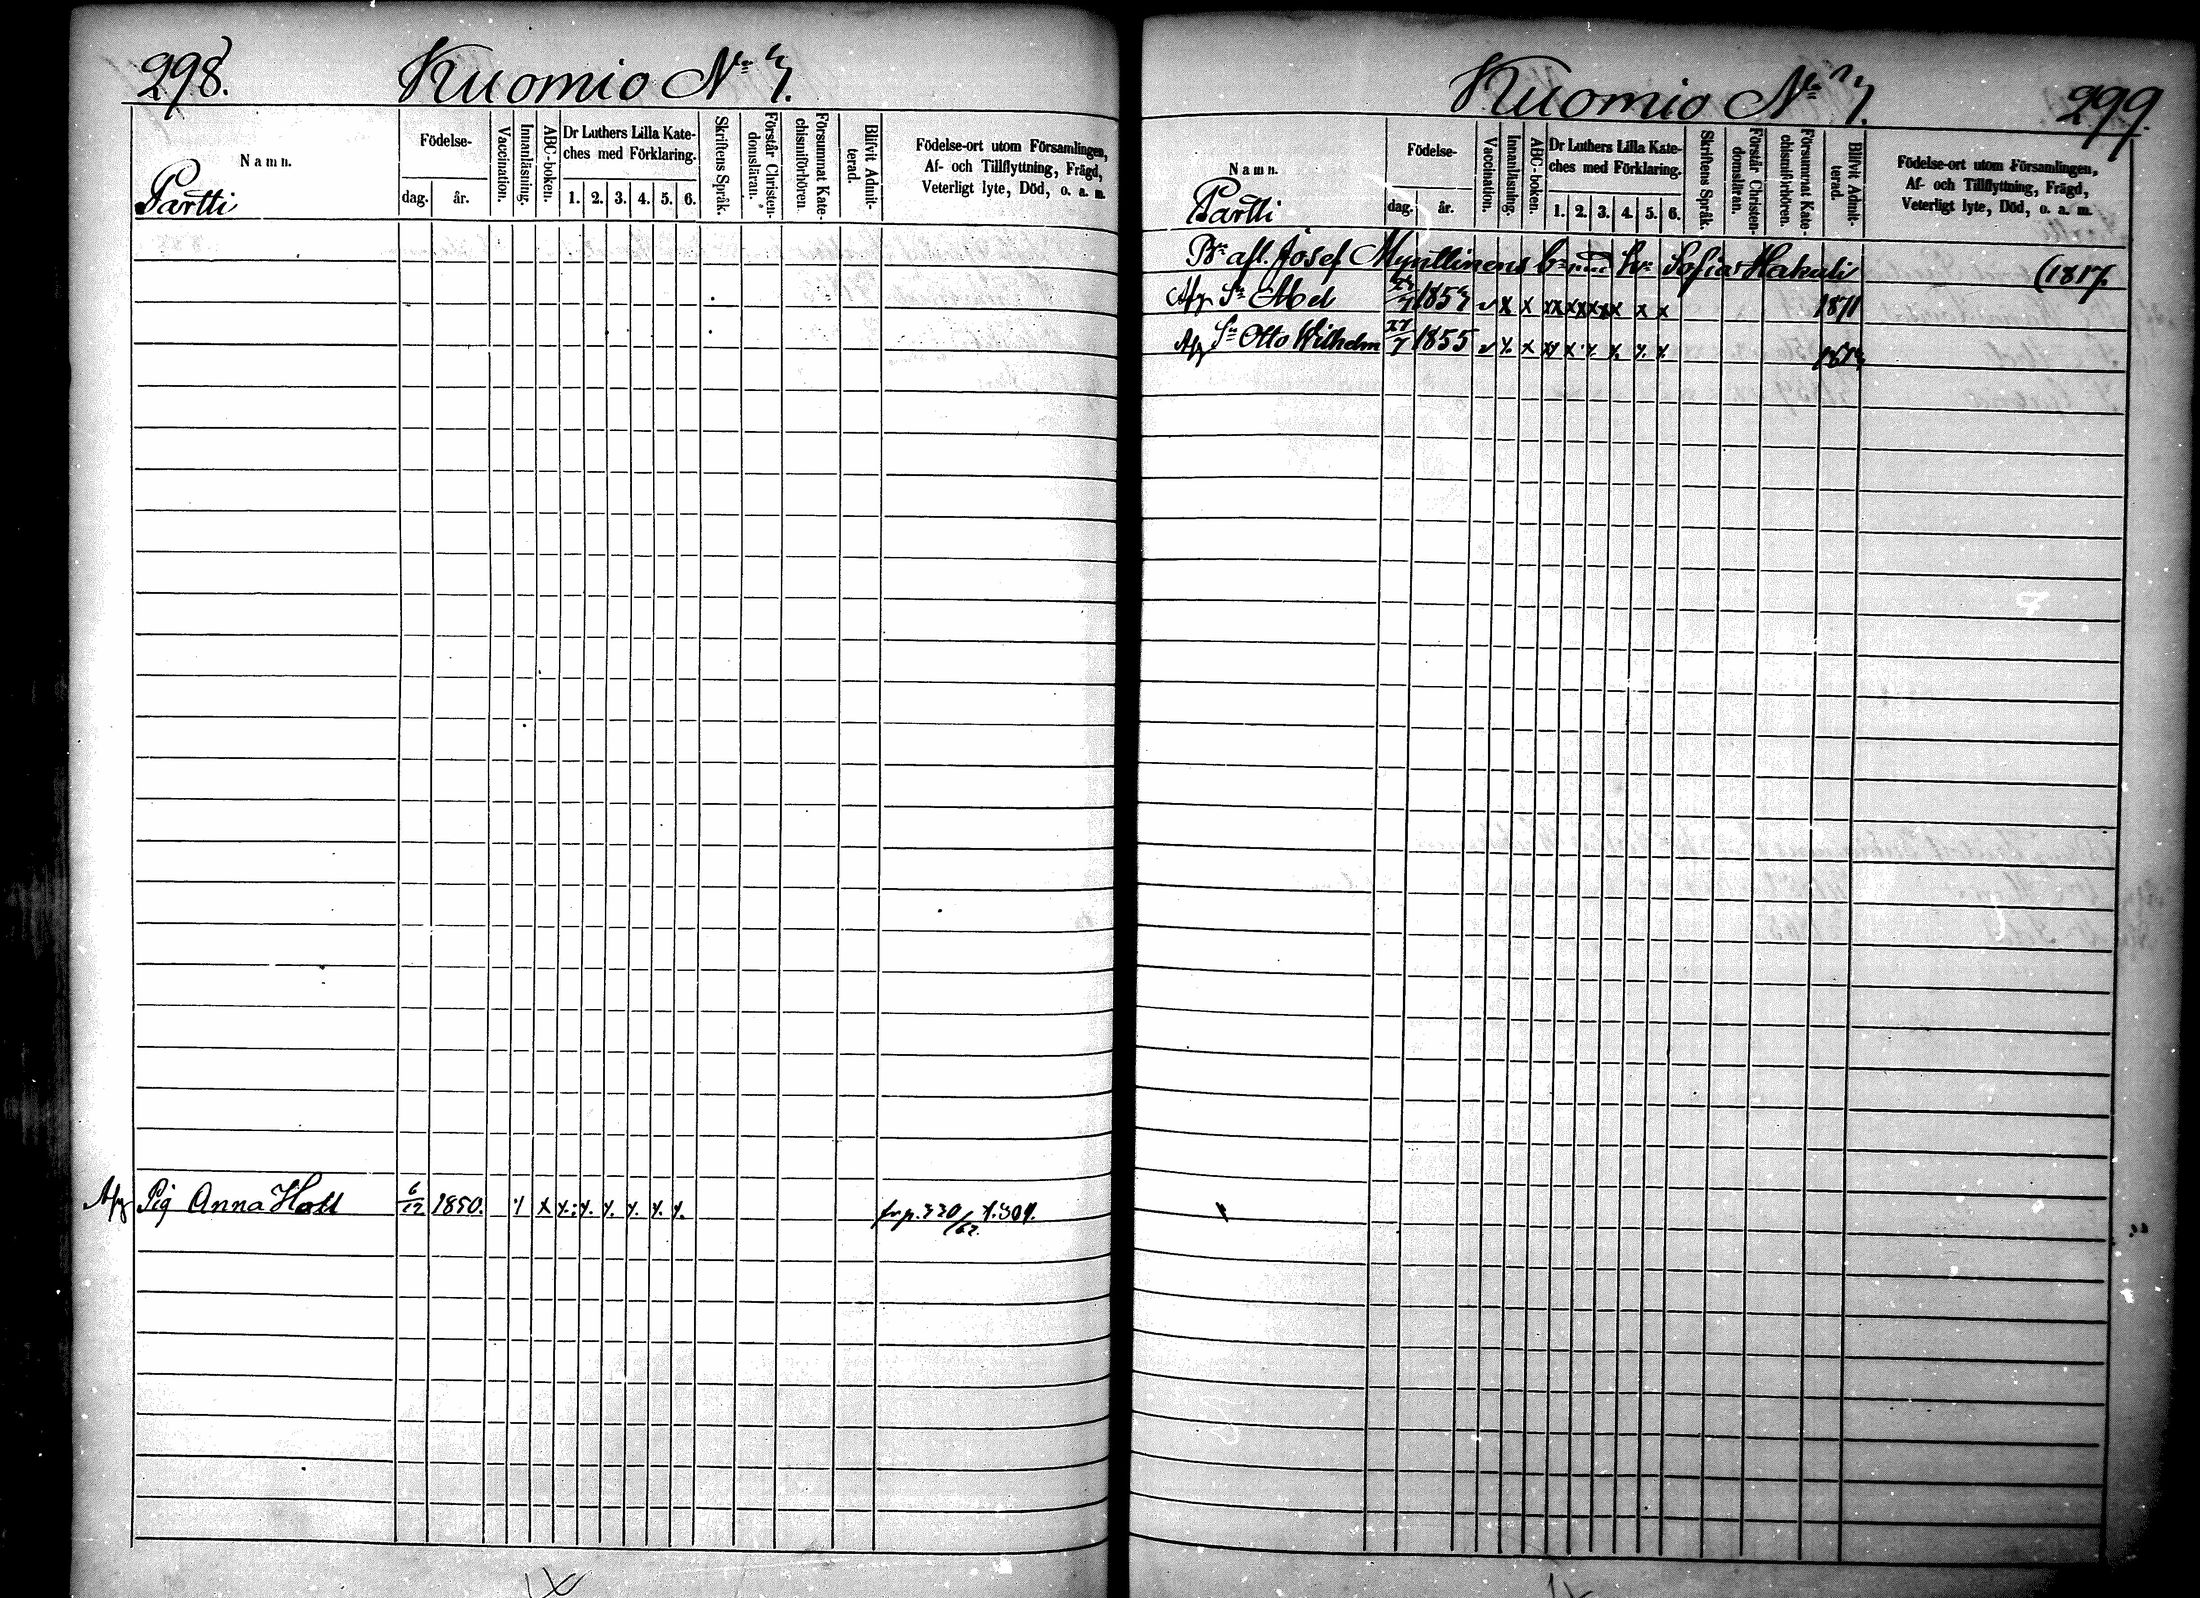 298.
Kuomio No 7.
Namn.
Födelse-
dag. år.
Vaccination.
Innanläsning.
ABC-boken.
Dr Luthers Lilla Kate-
ches med Förklaring.
1. 2. 3. 4. 5. 6.
Skriftens Språk.
Förstår Christen-
domsläran.
Försummat Kate-
chismiförhören.
Blifvit Admit-
terad.
Födelse-ort utom Församlingen,
Af- och Tillflyttning, Frägd,
Veterligt lyte, Död, o. a. m.
Partti
Afg Pig Anna Holl 6/12 1850. x x x x x x x x fr p. 320/62.
Kuomio No 7.
299.
Namn.
Födelse-
dag. år.
Vaccination.
Innanläsning.
ABC-boken.
Dr Luthers Lilla Kate-
ches med Förklaring.
1. 2. 3. 4. 5. 6.
Skriftens Språk.
Förstår Christen-
domsläran.
Försummat Kate-
chismiförhören.
Blifvit Admit-
terad.
Födelse-ort utom Församlingen,
Af- och Tillflyttning, Frägd,
Veterligt lyte, Död, o. a. m.
Partti
Bn afl. Josef Hu Sofia (1817.
Afg Sn Abel 1857 x x x x x x x x 1871
Afg Sn Otto Wilhelm 1855 x x x x x x x x